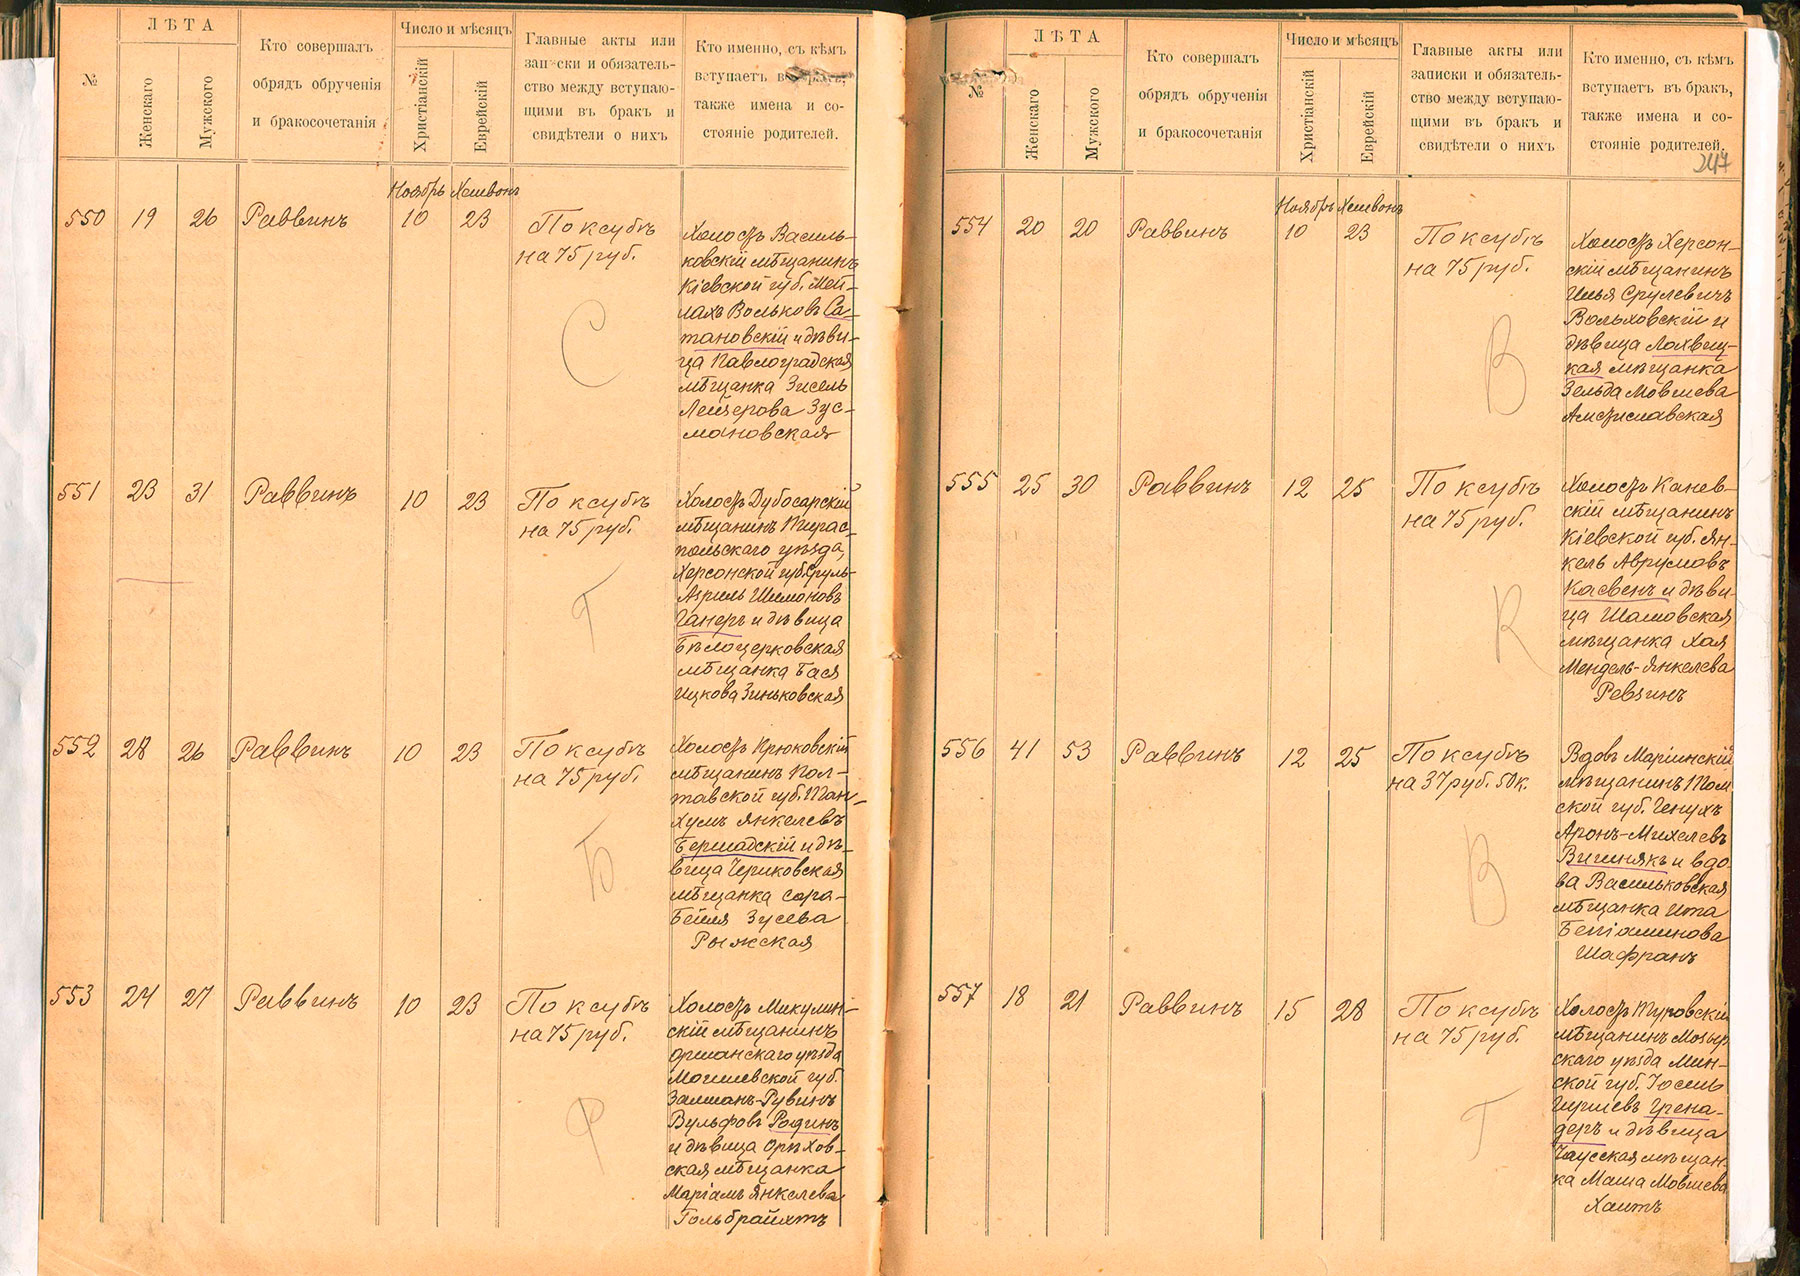 №
ЛѢТА
Женскаго
Мужского
Кто совершалъ
обрядъ обрученія
и бракосочетанія
Число и мѣсяцъ
Христіанскій
Еврейскій
Главные акты или
записки и обязатель-
ство между вступаю-
щими въ бракъ и
свидѣтели о нихъ
Кто именно, съ кѣмъ
вступаетъ въ бракъ,
также имена и со-
стояніе родителей.
Ноябрь Хешвонъ
550 19 26 Раввинъ 10 23
По ксубѣ
на 75 руб.
С
Холостъ Василь-
ковскій мѣщанинъ
Кіевской губ. Мей-
лахъ Вольковъ Са-
тановскій и дѣви-
ца Павлоградская
мѣщанка Зисель
Лейзерова Зус-
мановская
551 23 31 Раввинъ 10 23
По ксубѣ
на 75 руб.
Г
Холостъ Дубосарскій
мѣщанинъ Тирас-
польскаго уѣзда,
Херсонской губ. Сруль-
Азриль Шимоновъ
Ганеръ и дѣвица
Бѣлоцерковская
мѣщанка Бася
Ицкова Зиньковская
552 28 26 Раввинъ 10 23
По ксубѣ
на 75 руб.
Б
Холостъ Крюковскій
мѣщанинъ Пол-
тавской губ. Тан-
хумъ Янкелевъ
Бершадскій и дѣ-
вица Чериковская
мѣщанка Сора-
Бейля Зусева
Рыжская
553 24 27 Раввинъ 10 23
По ксубѣ
на 75 руб.
Р
Холостъ Микулин-
скій мѣщанинъ
Оршанскаго уѣзда
Могилевской губ.
Залманъ-Рувинъ
Вульфовъ Родинъ
и дѣвица Орѣхов-
ская мѣщанка
Маріамъ Янкелева
Гольбрайхтъ
№
ЛѢТА
Женскаго
Мужского
Кто совершалъ
обрядъ обрученія
и бракосочетанія
Число и мѣсяцъ
Христіанскій
Еврейскій
Главные акты или
записки и обязатель-
ство между вступаю-
щими въ бракъ и
свидѣтели о нихъ
Кто именно, съ кѣмъ
вступаетъ въ бракъ,
также имена и со-
стояніе родителей.
247
Ноябрь Хешвонъ
554 20 20 Раввинъ 10 23
По ксубѣ
на 75 руб.
В
Холостъ Херсон-
скій мѣщанинъ
Илья Срулевичъ
Вольховскій и
дѣвица Лохвиц-
кая мѣщанка
Зельда Мовшева
Амстиславская
555 25 30 Раввинъ 12 25
По ксубѣ
на 75 руб.
К
Холостъ Канев-
скій мѣщанинъ
Кіевской губ. Ян-
кель Аврумовъ
Касвенъ и дѣви-
ца Шаловская
мѣщанка Хая
Мендель-Янкелева
Ревзинъ
556 41 53 Раввинъ 12 25
По ксубѣ
на 37 руб. 50 к.
В
Вдовъ Маріинскій
мѣщанинъ Том
ской губ. Генухъ
Аронъ-Михелевъ
Вигинякъ и вдо
ва Васильковская
мѣщанка Ита
Бенiаминова
Шафранъ
557 18 21 Раввинъ 15 28
По ксубѣ
на 75 руб.
Г
Холостъ Туровскій
мѣщанинъ Мозыр
скаго уѣзда Мин-
ской губ. Іосель
Гиршевъ Грена-
деръ и дѣвица
Чаусская мѣщан-
ка Маша Мовшева
Хаитъ